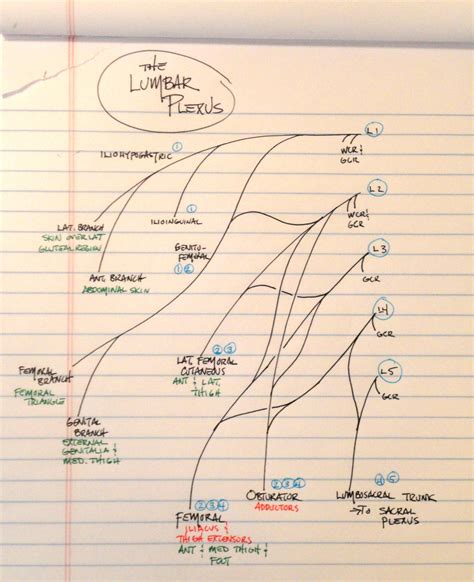 THE
LUMBAR
PLEXUS
L1
WCR &
GCR
ILIOHYPOGASTRIC
1
L2
WCR &
GCR
LAT. BRANCH
SKIN OVER LAT
GLUTEAL REGION
1
ILIOINGUINAL
GENITO-
FEMORAL
1 2
L3
GCR
ANT. BRANCH
ABDOMINAL SKIN
L4
GCR
2 3
LAT. FEMORAL
CUTANEOUS
ANT & LAT.
THIGH
L5
GCR
FEMORAL
BRANCH
FEMORAL
TRIANGLE
GENITAL
BRANCH
EXTERNAL
GENITALIA &
MED. THIGH
2 3 4
FEMORAL
ILIACUS &
THIGH EXTENSORS
ANT & MED THIGH &
FOOT
2 3 4
OBTURATOR
ADDUCTORS
4 5
LUMBOSACRAL TRUNK
→ TO SACRAL
PLEXUS